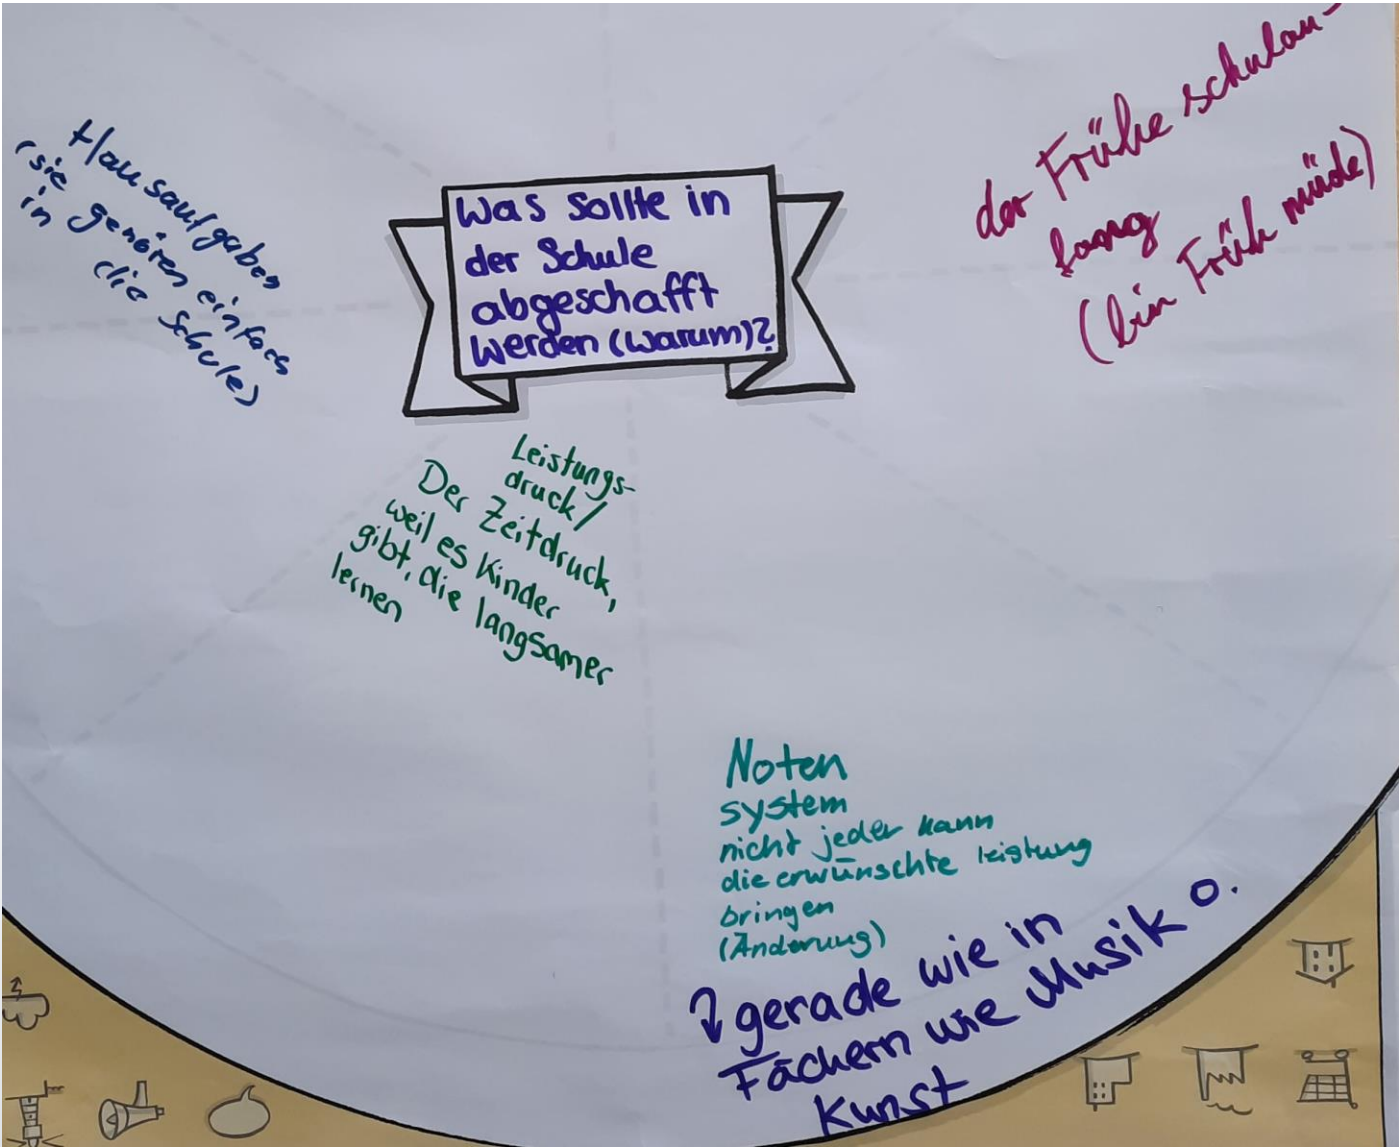 Was sollte in
der Schule
abgeschafft
werden (warum)?
Hausaufgaben
(sie gehören einfach
in
die Schule)
der Frühe schulan-
fang
(bin Früh müde)
Leistungs-
druck/
Der Zeitdruck,
weil es Kinder
gibt, die langsamer
lernen
Noten
system
nicht jeder kann
die erwünschte leistung
bringen
(Änderung)
↴ gerade wie in
Fächern wie Musik o.
Kunst